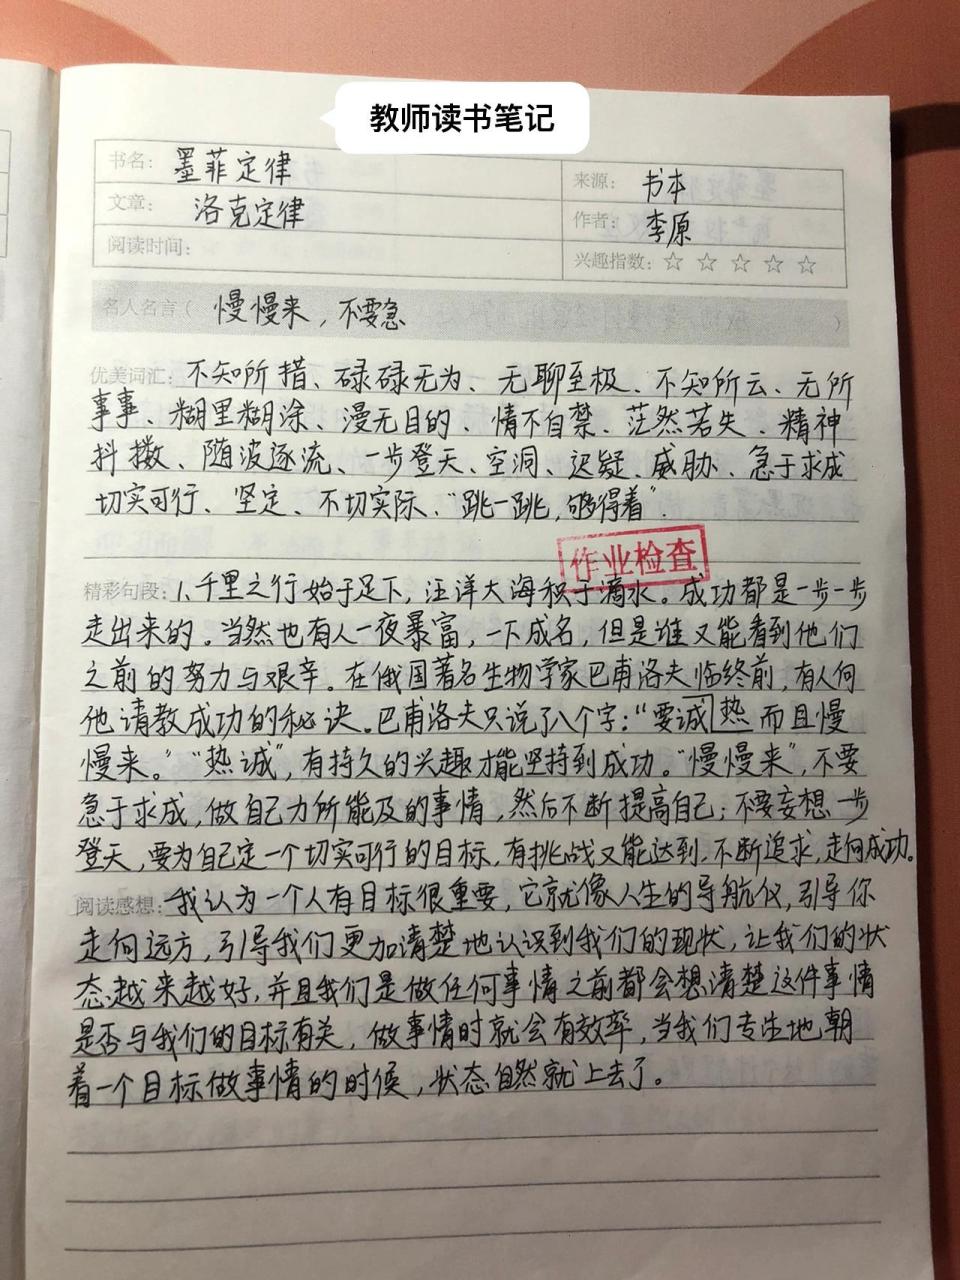 教师读书笔记
书名：墨菲定律
来源：书本
文章：洛克定律
作者：李原
阅读时间：
兴趣指数：☆ ☆ ☆ ☆ ☆
名人名言（ 慢慢来，不要急 ）
优美词汇：不知所措、碌碌无为、无聊至极、不知所云、无所
事事、糊里糊涂、漫无目的、情不自禁、茫然若失、精神
抖擞、随波逐流、一步登天、空洞、迟疑、威胁、急于求成
切实可行、坚定、不切实际、“跳一跳，够得着”.
作业检查
精彩句段：1.千里之行始于足下，汪洋大海积于滴水。成功都是一步一步
走出来的。当然也有人一夜暴富，一下成名，但是谁又能看到他们
之前的努力与艰辛。在俄国著名生物学家巴甫洛夫临终前，有人向
他请教成功的秘诀。巴甫洛夫只说了八个字：“要诚热而且慢
慢来。”“热诚”，有持久的兴趣才能坚持到成功。“慢慢来”，不要
急于求成，做自己力所能及的事情，然后不断提高自己；不要妄想一步
登天，要为自己定一个切实可行的目标，有挑战又能达到，不断追求，走向成功。
阅读感想：我认为一个人有目标很重要，它就像人生的导航仪，引导你
走向远方，引导我们更加清楚地认识到我们的现状，让我们的状
态越来越好，并且我们是做任何事情之前都会想清楚这件事情
是否与我们的目标有关，做事情时就会有效率，当我们专注地朝
着一个目标做事情的时候，状态自然就上去了。